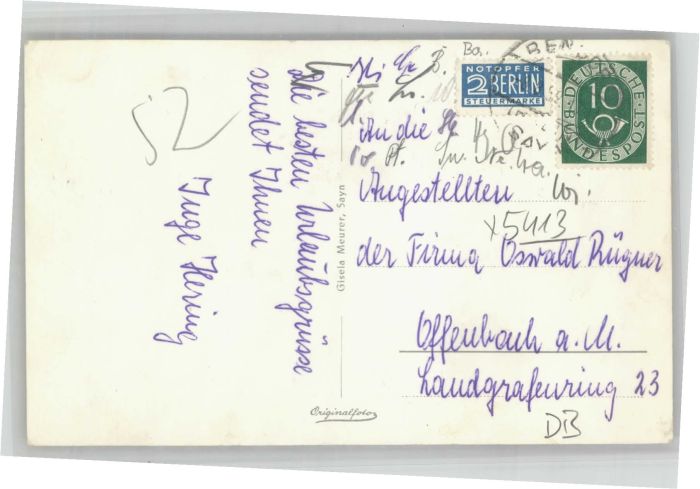 Die besten Urlaubsgrüsse
sendet Ihnen
Inge Hering
52
Gisela Meurer, Sayn
Originalfoto
NOTOPFER
2 BERLIN
STEUERMARKE
DEUTSCHE
10
BUNDESPOST
BEN
An die
Angestellten
x5413
der Firma Oswald Rügner
Offenbach a. M.
Landgrafenring 23
DB